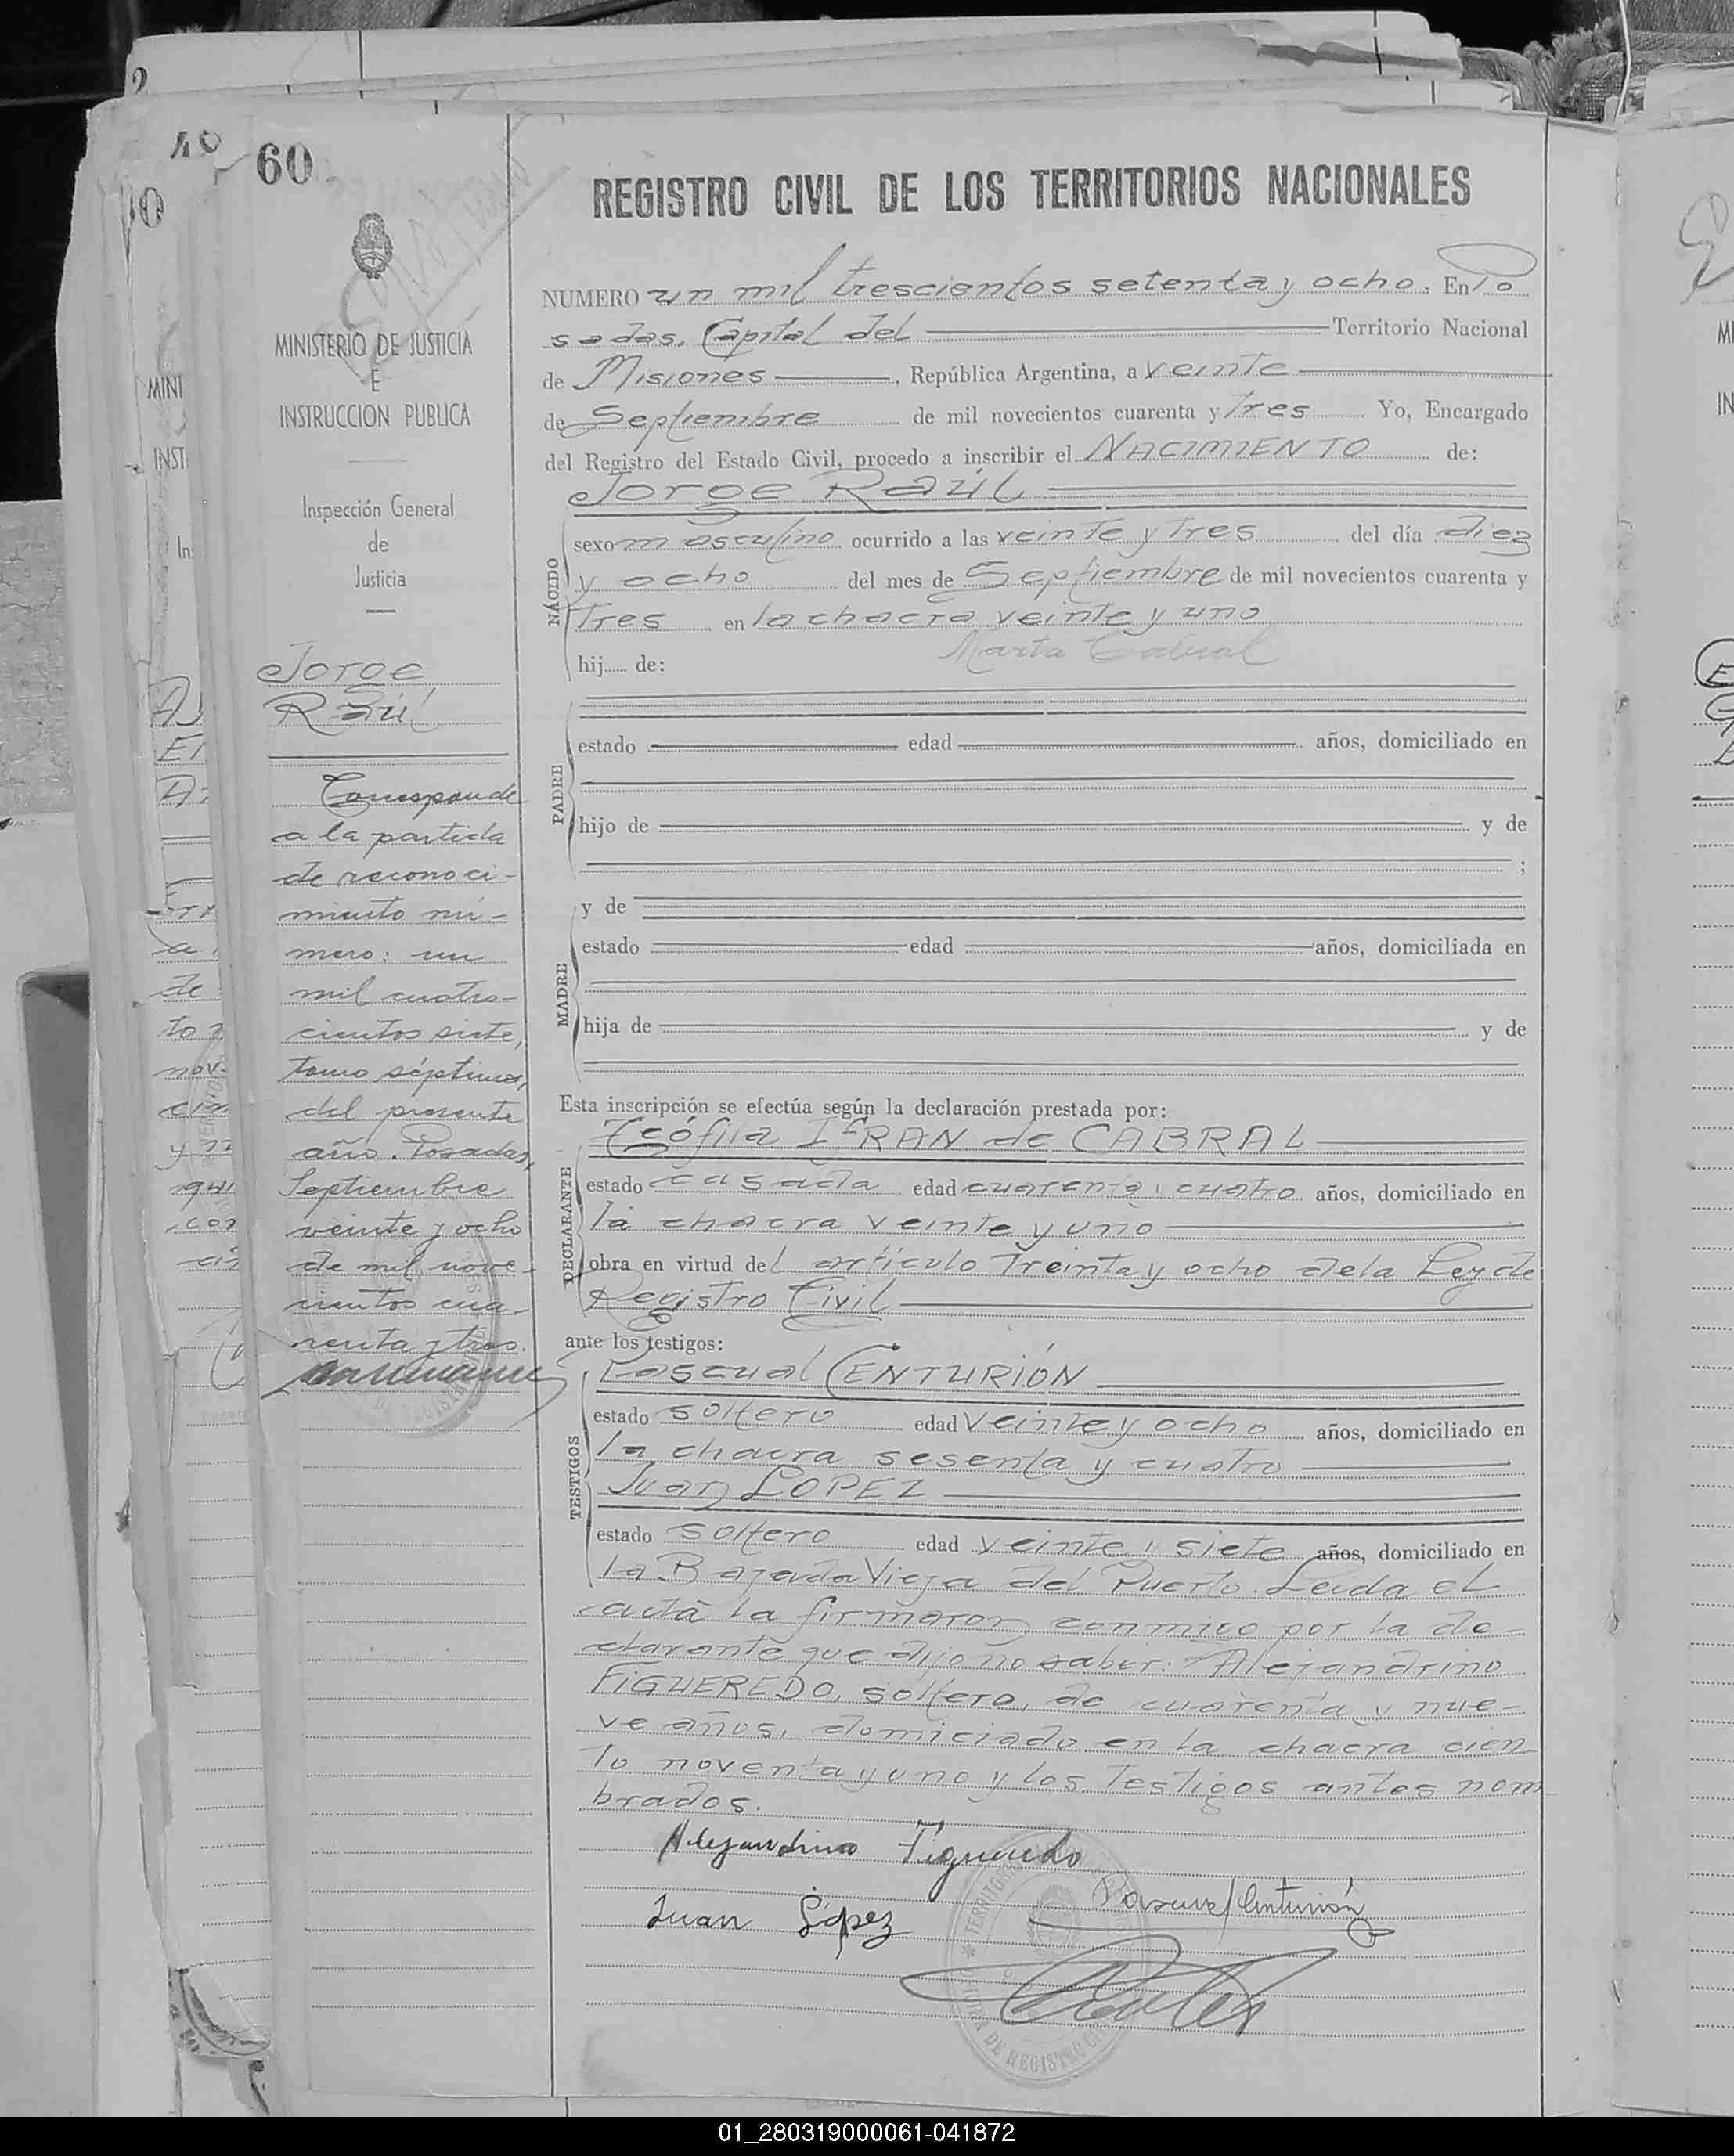 60
REGISTRO CIVIL DE LOS TERRITORIOS NACIONALES
MINISTERIO DE JUSTICIA
E
INSTRUCCION PUBLICA
Inspección General
de
Justicia
Jorge
Raúl
Corresponde
a la partida
de reconoci-
miento nú-
mero: un
mil cuatro-
cientos siete,
tomo séptimo,
del presente
año. Posadas,
Septiembre
veinte y ocho
de mil nove-
cientos cua-
renta y tres.
NUMERO un mil trescientos setenta y ocho. En Po
sadas, Capital del Territorio Nacional
de Misiones, República Argentina, a veinte
de Septiembre de mil novecientos cuarenta y tres Yo, Encargado
del Registro del Estado Civil, procedo a inscribir el NACIMIENTO de:
Jorge Raúl
NACIDO
sexo masculino ocurrido a las veinte y tres del día diez
y ocho del mes de Septiembre de mil novecientos cuarenta y
tres en la chacra veinte y uno
Marta Cabral
hij de:
PADRE
estado edad años, domiciliado en
hijo de y de
;
y de
MADRE
estado edad años, domiciliada en
hija de y de
Esta inscripción se efectúa según la declaración prestada por:
Teófila IFRAN de CABRAL
DECLARANTE
estado casada edad cuarenta y cuatro años, domiciliado en
la chacra veinte y uno
obra en virtud del artículo treinta y ocho de la Ley de
Registro Civil
ante los testigos:
Pascual CENTURIÓN
TESTIGOS
estado soltero edad veinte y ocho años, domiciliado en
la chacra sesenta y cuatro
Juan LOPEZ
estado soltero edad veinte y siete años, domiciliado en
la Bajada Vieja del Puerto. Leida el
acta la firmaron conmigo por la de-
clarante que dijo no saber: Alejandrino
FIGUEREDO, soltero, de cuarenta y nue-
ve años, domiciado en la chacra cien
to noventa y uno y los testigos antes nom
brados.
Alejandrino Figueredo
Juan López
Pascual Centurión
01_280319000061-041872